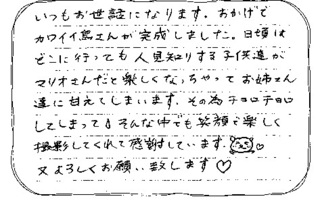 いつもお世話になります。おかげで
カワイイ写さんが完成しました。日頃は
どこに行っても人見知りする子供達が
マリオさんだと楽しくなっちゃってお姉さん
達に甘えてしまいます。その為チョロチョロ
してしまって♪そんな中でも笑顔で楽しく
撮影してくれて感謝しています。
又よろしくお願い致します♡